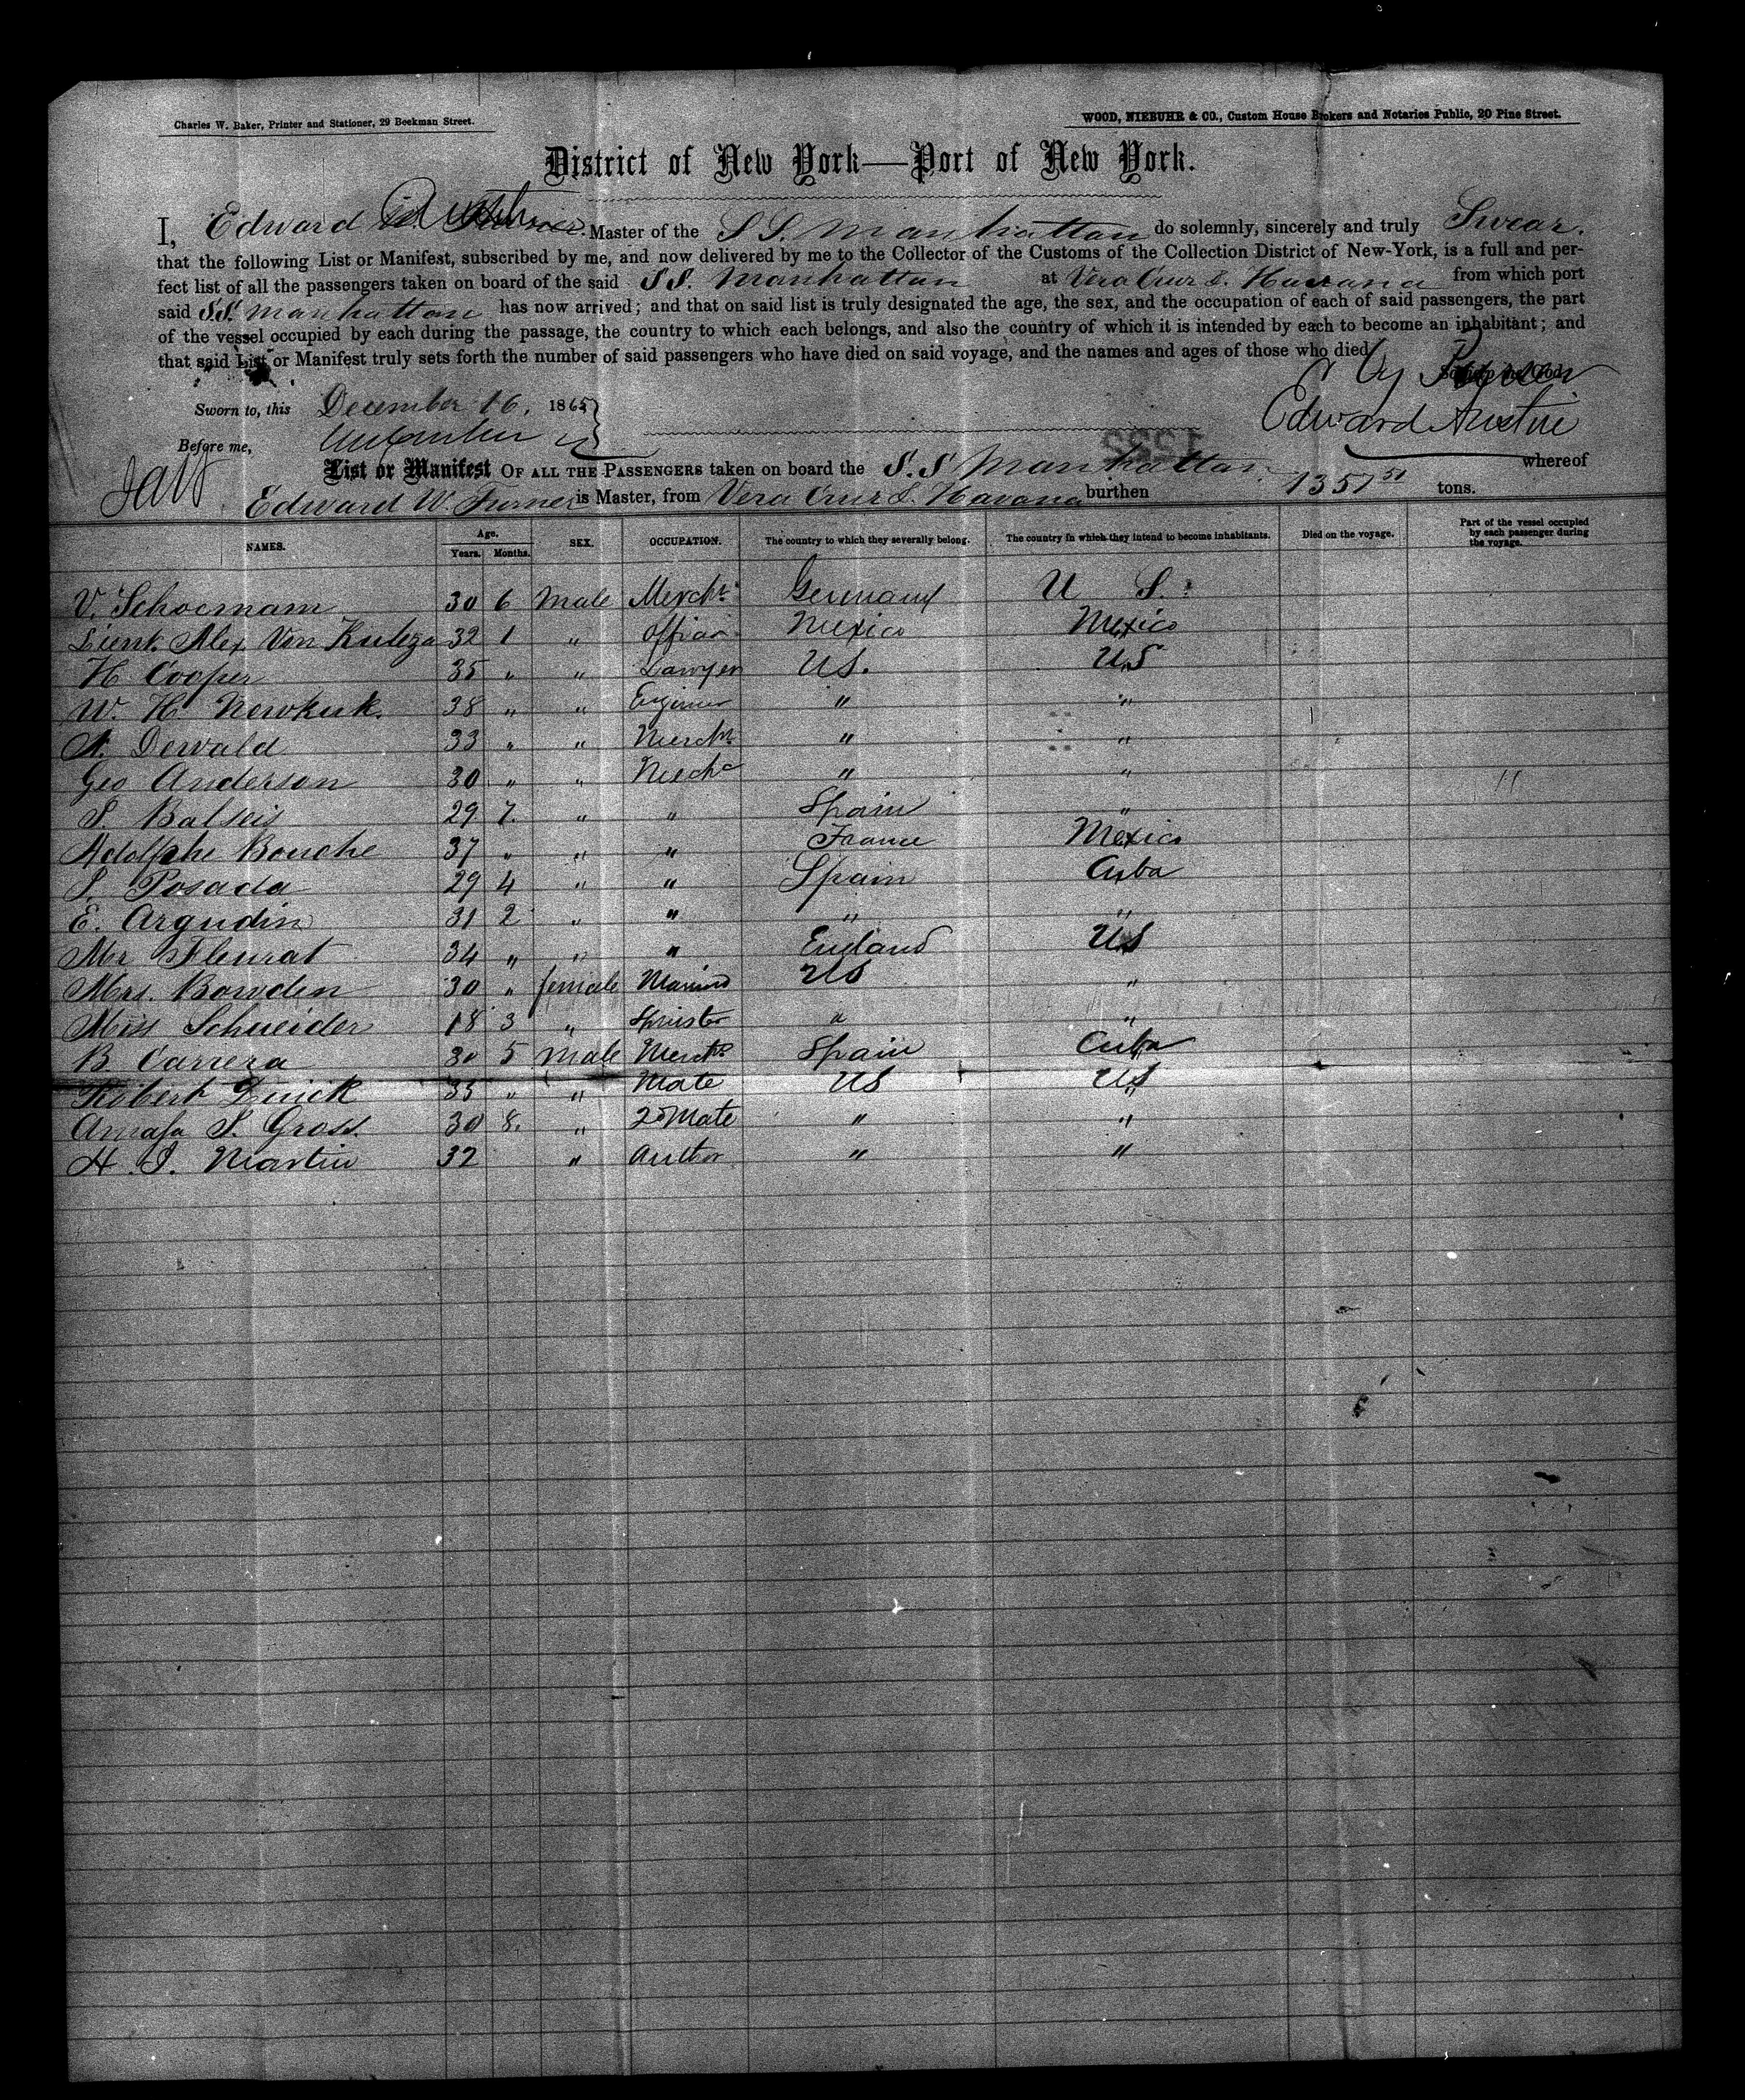 Charles W. Baker, Printer and Stationer, 29 Beekman Street.
WOOD, NIEBUHR & CO., Custom House Brokers and Notaries Public, 20 Pine Street.
District of New York—Port of New York.
I, Edward Master of the S S. Manhattan do solemnly, sincerely and truly Swear.
that the following List or Manifest, subscribed by me, and now delivered by me to the Collector of the Customs of the Collection District of New-York, is a full and per-
fect list of all the passengers taken on board of the said SS. Manhattan at Vera Cruz & Havana from which port
said SS. Manhattan has now arrived; and that on said list is truly designated the age, the sex, and the occupation of each of said passengers, the part
of the vessel occupied by each during the passage, the country to which each belongs, and also the country of which it is intended by each to become an inhabitant; and
that said List or Manifest truly sets forth the number of said passengers who have died on said voyage, and the names and ages of those who died.
So help me God.
Sworn to, this December 16, 1865
Edward Austin
Before me,
List or Manifest OF ALL THE PASSENGERS taken on board the S.S Manhattan whereof
Edward W. Turner is Master, from Vera Cruz & Havana burthen 1351 51 tons.
NAMES. Age. Years. Months. SEX. OCCUPATION. The country to which they severally belong. The country in which they intend to become inhabitants. Died on the voyage. Part of the vessel occupied by each passenger during the voyage.
V. Schoemam 30 6 Male Mercht Germany U S.
Lieut. Alex Von 32 1 " Officer Mexico Mexico
H Cooper 35 " " Lawyer US. US
W. H. Newkirk. 38 " " Engineer " "
A. Dewald 33 " " Mercht " "
Geo Anderson 30 " " " "
S. 29 7. " " Spain "
Adolphe Bouche 37 " " " France Mexico
Posada 29 4 " " Spain Cuba
E. Argudin 31 2 " " " "
Mr Fleurat 34 " " " England US
Mrs. Bowden 30 " female Married US "
Miss Schneider 18 3 " Spinster " "
B Carrera 30 5 Male Mercht Spain Cuba
Robert 35 " " Mate US US
Amasa S. Gross. 30 8. " 2d Mate " "
H. S. Martin 32 " Author " "